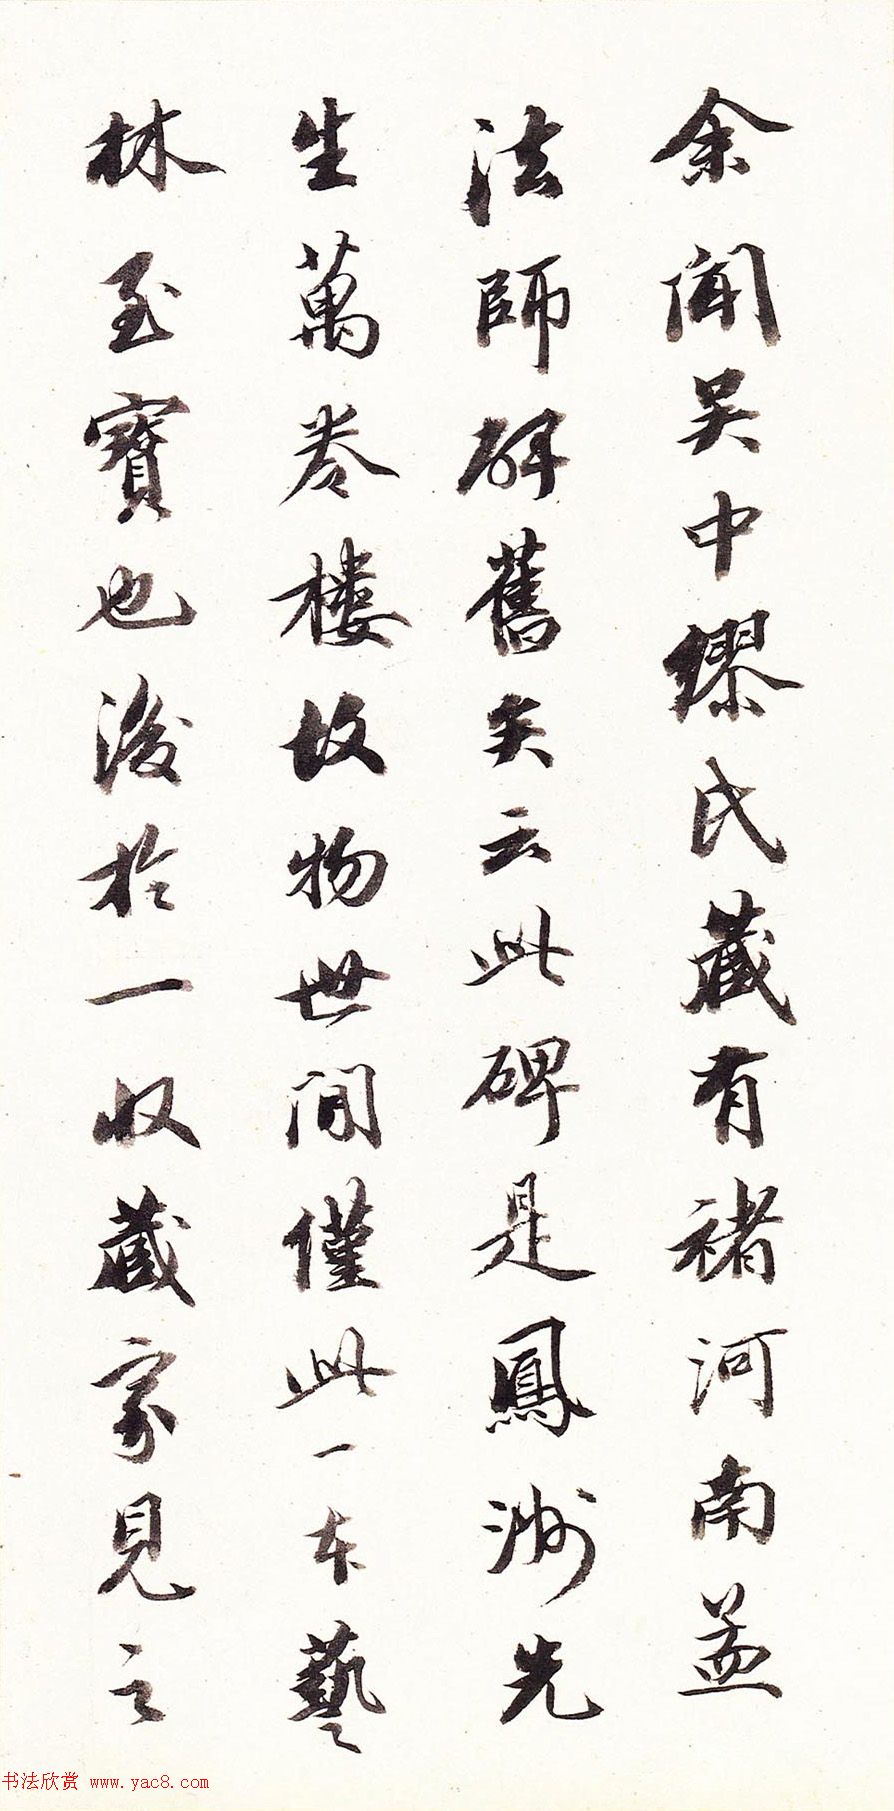 余聞吴中繆氏藏有褚河南孟
法師碑舊矣云此碑是鳳洲先
生萬卷樓故物世間僅此一本藝
林至寶也後於一收藏家見之
书法欣赏 www.yac8.com